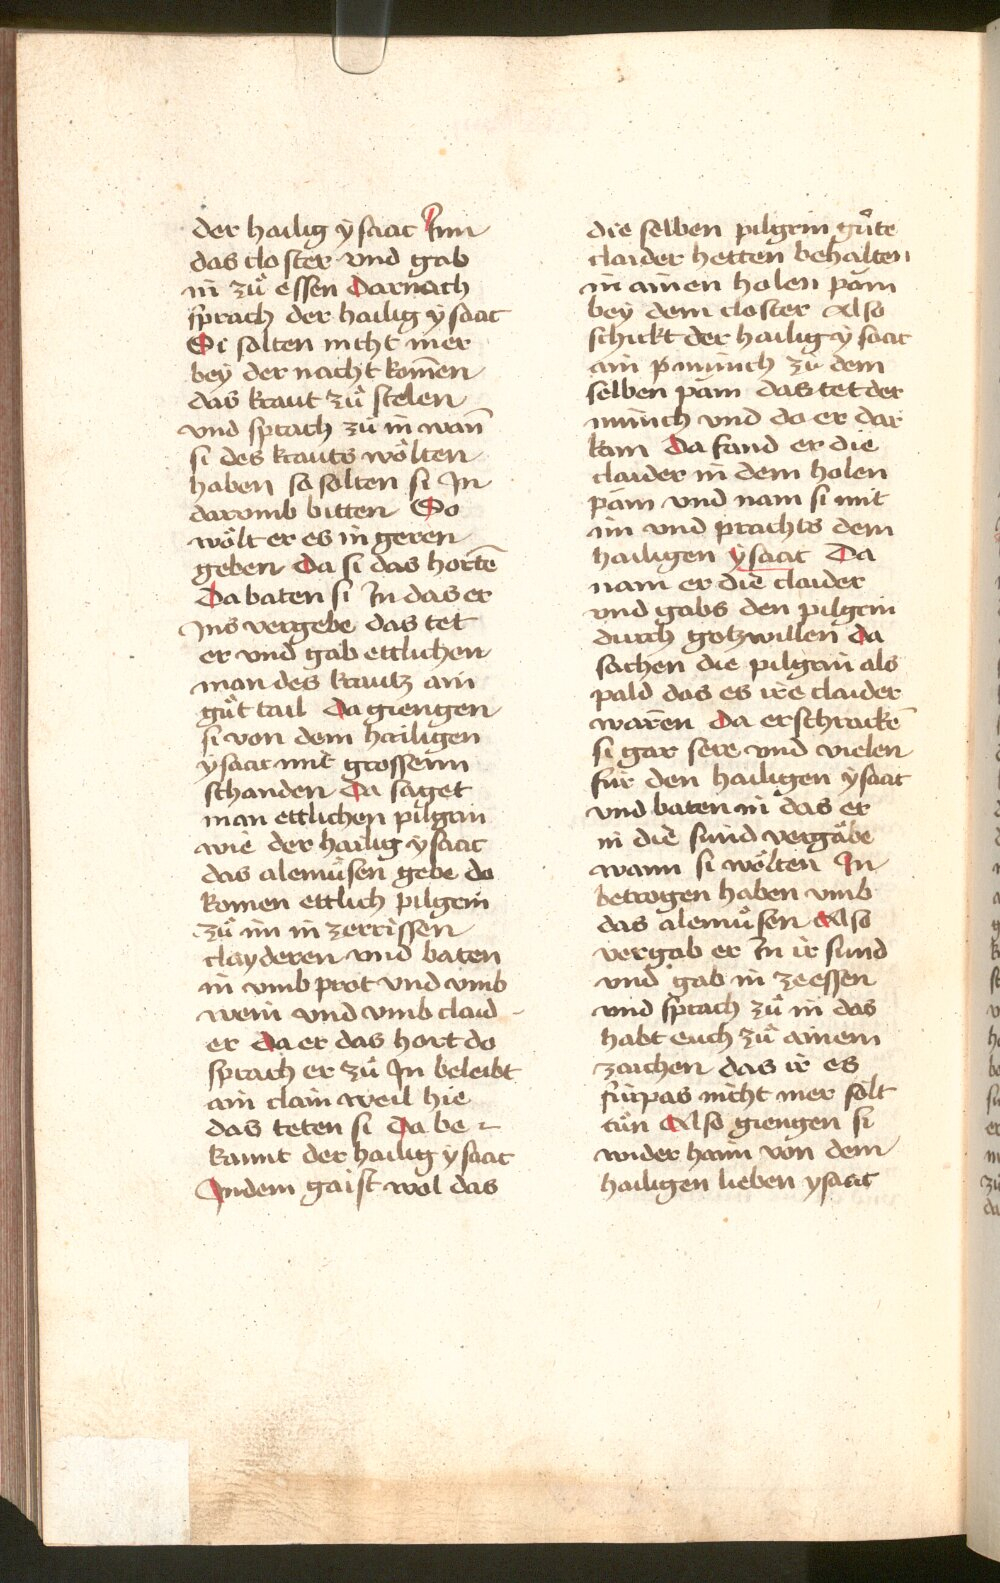 der hailig ẏsaac Jnn
das closter vnd gab
in zů essen Darnach
sprach der hailig ẏsaac
Si solten nicht mer
beẏ der nacht kom̄en
das kraut zů stelen
vnd sprach zů in wan̄
si des krauts wo᷑lten
haben so solten si Jn
darvmb bitten So
wo᷑lt er es in geren
geben Da si das horte᷑
Da baten si In das er
Jns vergebe das tet
er vnd gab ettlichen
man des krautz ain
gůt tail Da giengen
si von dem hailigen
ẏsaac mit grossenn
schanden Da saget
man ettlichen pilgrin
wie der hailig ẏsaac
das alemůsen gebe do
komen ettlich pilgrin
zů im in zerrissen
claẏderen vnd baten
in vmb prot vnd vmb
wein vnd vmb claid -
er Da er das hort do
sprach er zů Jn beleibt
ain clain weil hie
das teten si Da be -
kannt der hailig ẏsaac
Jndem gaist wol das
die selben pilgrin gůte
claider hetten behalten
in ainen holen pam
beẏ dem closter Also
schickt der hailig ẏsaac
ain münch zů dem
selben pam das tet der
münch vnd do er dar
kam Da fand er die
claider in dem holen
pam vnd nam si mit
im vnd prachts dem
hailigen ẏsaac Da
nam er die claider
vnd gabs den pilgrin
durch gotz willen Da
sachen die pilgrin als
pald das es ire claider
waren Da erschracke᷑
si gar sere vnd vielen
für den hailigen ẏsaac
vnd baten in das er
in die sünd vergäbe
wann si wo᷑lten Jn
betrogen haben vmb
das alemůsen Also
vergab er In ir sund
vnd gab in ze essen
vnd sprach zů in das
habt euch zů ainem
zaichen das ir es
fürpas nicht mer solt
tůn Also giengen si
wider haim von dem
hailigen lieben ysaac